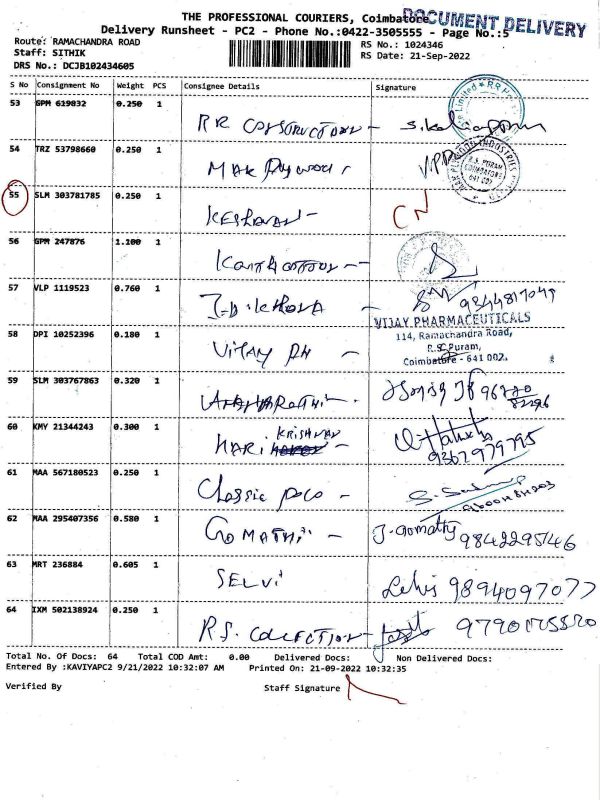 THE PROFESSIONAL COURIERS, Coimbatore
DOCUMENT DELIVERY
Delivery Runsheet - PC2 - Phone No.:0422-3505555 - Page No.:5
Route: RAMACHANDRA ROAD
Staff: SITHIK
DRS No.: DCJB102434605
RS No.: 1024346
RS Date: 21-Sep-2022
S No Consignment No Weight PCS Consignee Details Signature
53 GPM 619032 0.250 1 RR CONSTRUCTION -
54 TRZ 53798660 0.250 1 MAK Plywood
R.S. PURAM
COIMBATORE
641 002
55 SLM 303781785 0.250 1 KESHAVAN - CN
56 GPM 247876 1.100 1
57 VLP 1119523 0.760 1 9844817049
VIJAY PHARMACEUTICALS
114, Ramachandra Road,
R.S. Puram,
Coimbatore - 641 002.
58 DPI 10252396 0.180 1 VIJAY PH -
59 SLM 303767863 0.320 1
60 KMY 21344243 0.300 1 HARI KRISHNAN 9367979795
61 MAA 567180523 0.250 1 Classic Polo -
62 MAA 295407356 0.580 1 GOMATHI - J. Gomathy 9842295146
63 MRT 236884 0.605 1 SELVI 9894097077
64 IXM 502138924 0.250 1 R.S. COLLECTION - 9790175820
Total No. Of Docs: 64 Total COD Amt: 0.00 Delivered Docs: Non Delivered Docs:
Entered By :KAVIYAPC2 9/21/2022 10:32:07 AM Printed On: 21-09-2022 10:32:35
Verified By Staff Signature